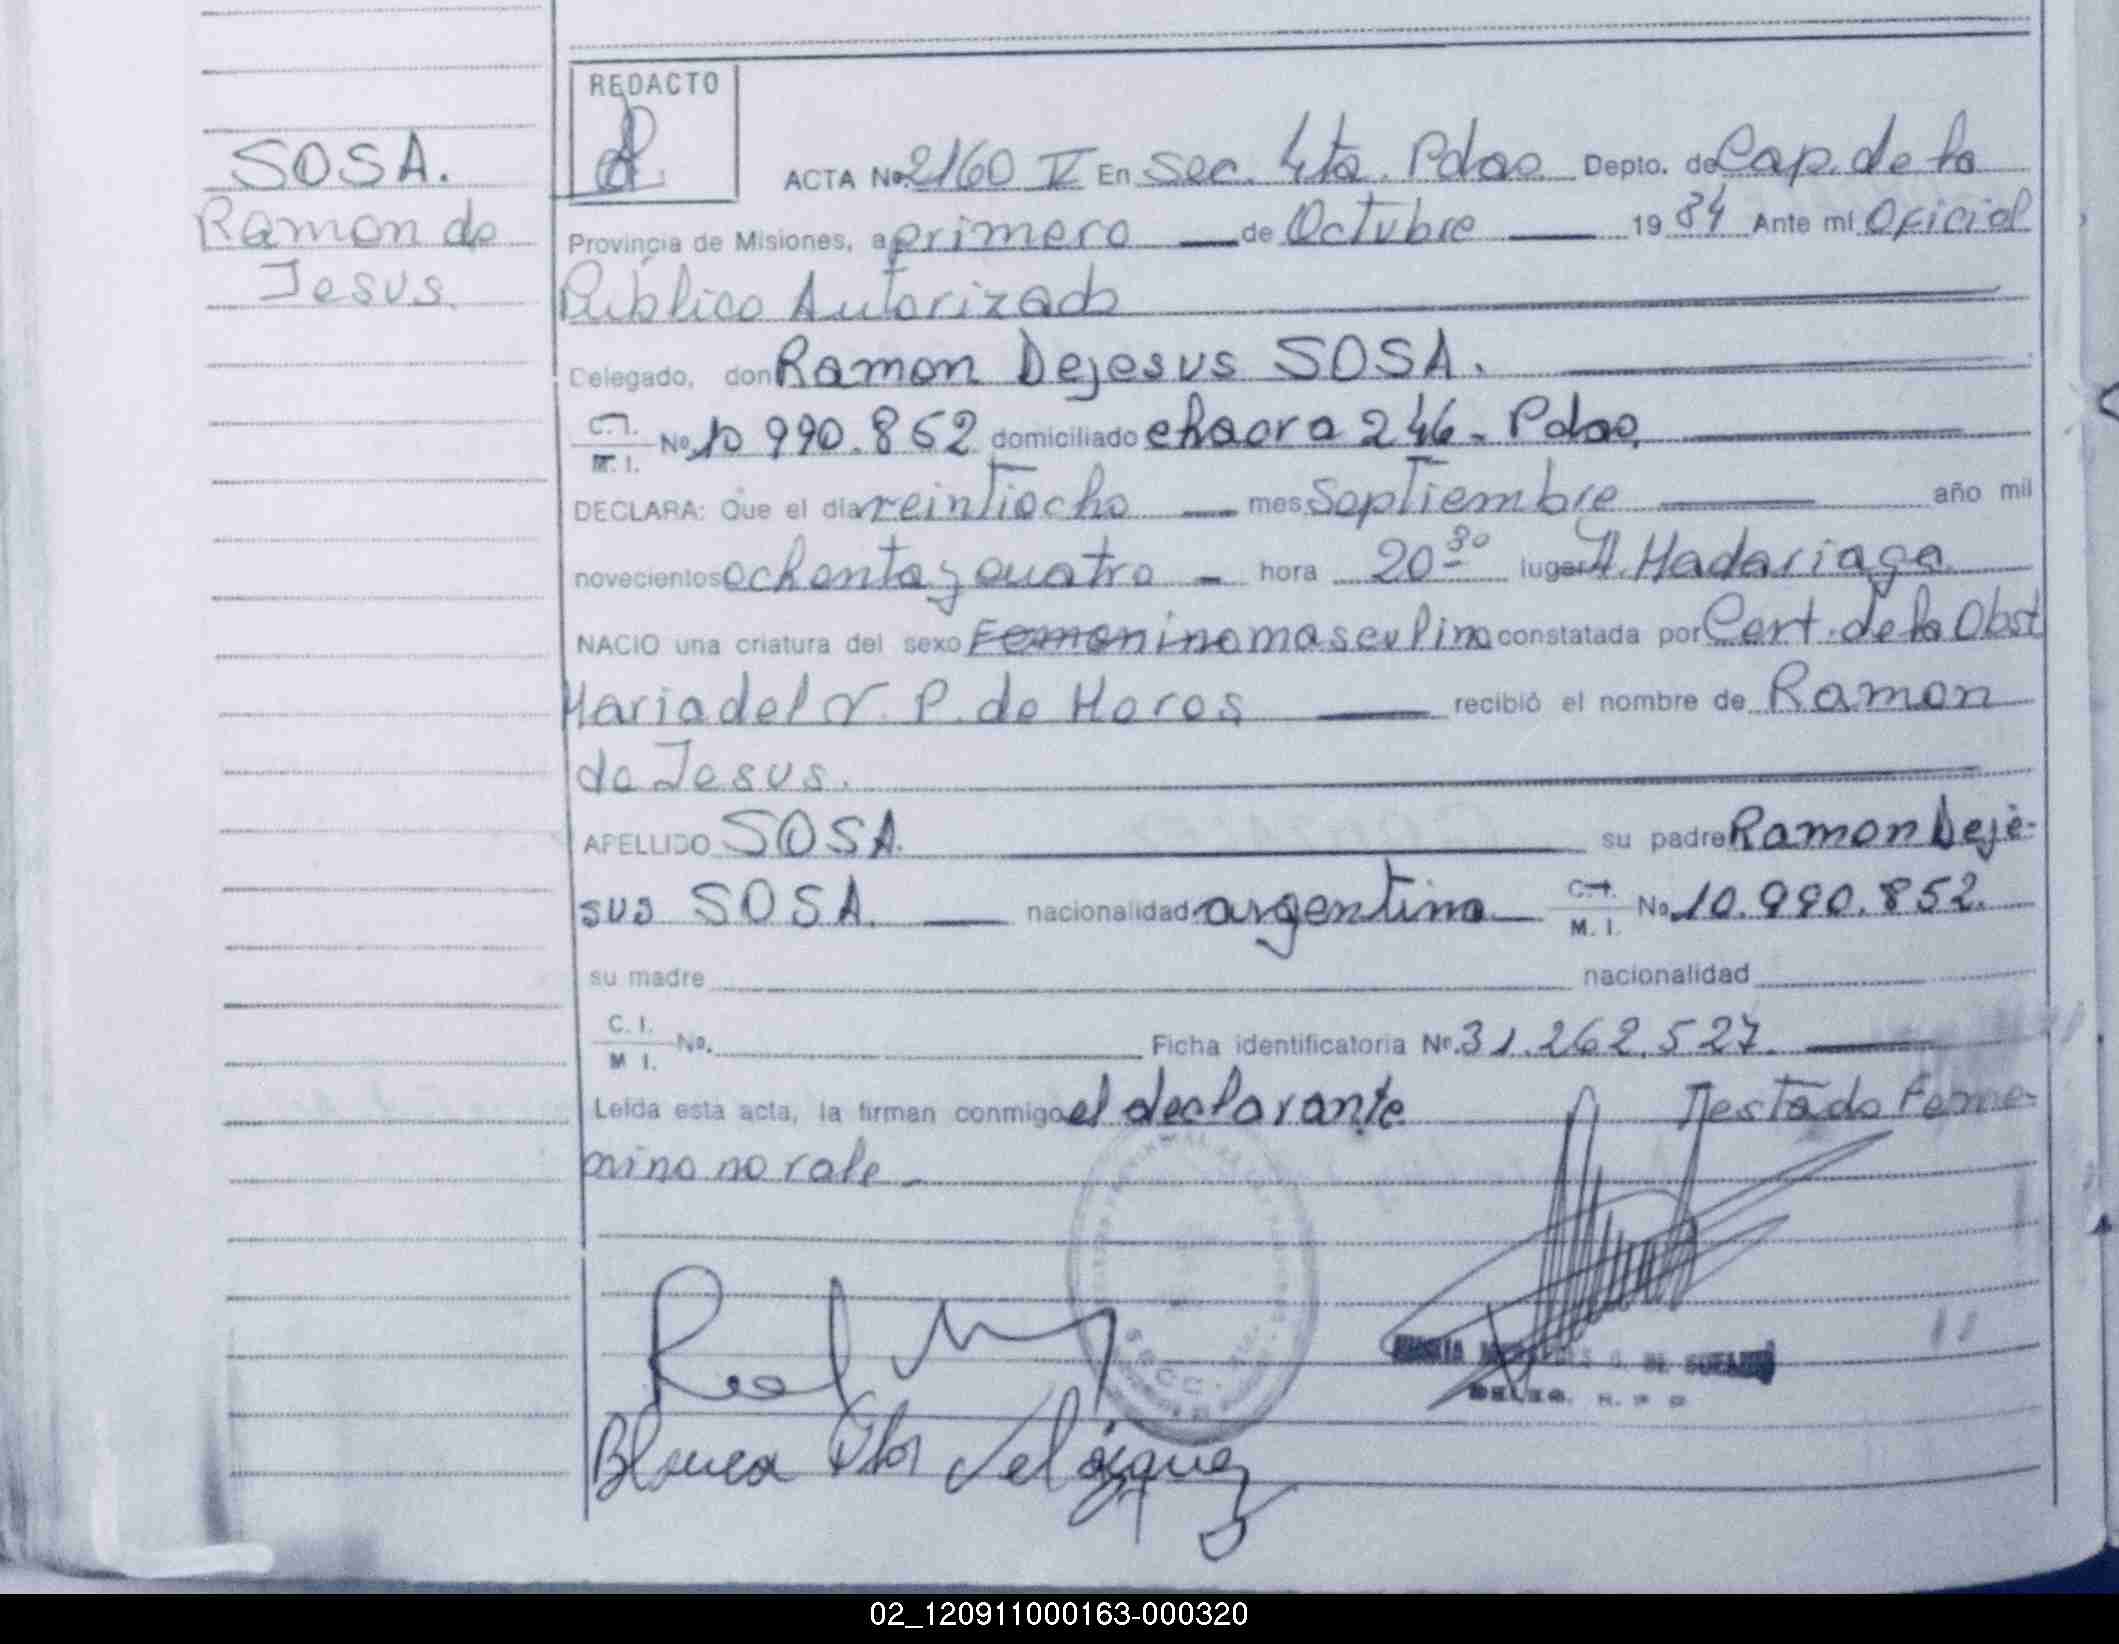 REDACTO
SOSA.
Ramon de
Jesus.
ACTA Nº 2160 V En Sec. 4ta. Pdas. Depto. de Cap. de la
Provincia de Misiones, a primero de Octubre 1984 Ante mi Oficial
Público Autorizado
Delegado, don Ramon Dejesus SOSA.
C.I.
M. I. Nº 10 990.852 domiciliado chacra 246. Pdas.
DECLARA: Que el día veintiocho mes Septiembre año mil
novecientos ochenta y cuatro - hora 20 30 lugar H. Madariaga
NACIO una criatura del sexo Femenino masculino constatada por Cert. de la Obst
Maria del V. P. de Moros recibió el nombre de Ramon
de Jesus.
APELLIDO SOSA. su padre Ramon Deje-
sus SOSA. nacionalidad argentina C.I.
M. I. Nº 10.990.852.
su madre nacionalidad
C. I.
M I. Nº. Ficha identificatoria Nº. 31.262.527.
Leída esta acta, la firman conmigo el declarante Testado Feme-
nino no vale -
Blanca Flor Velázquez
02_120911000163-000320